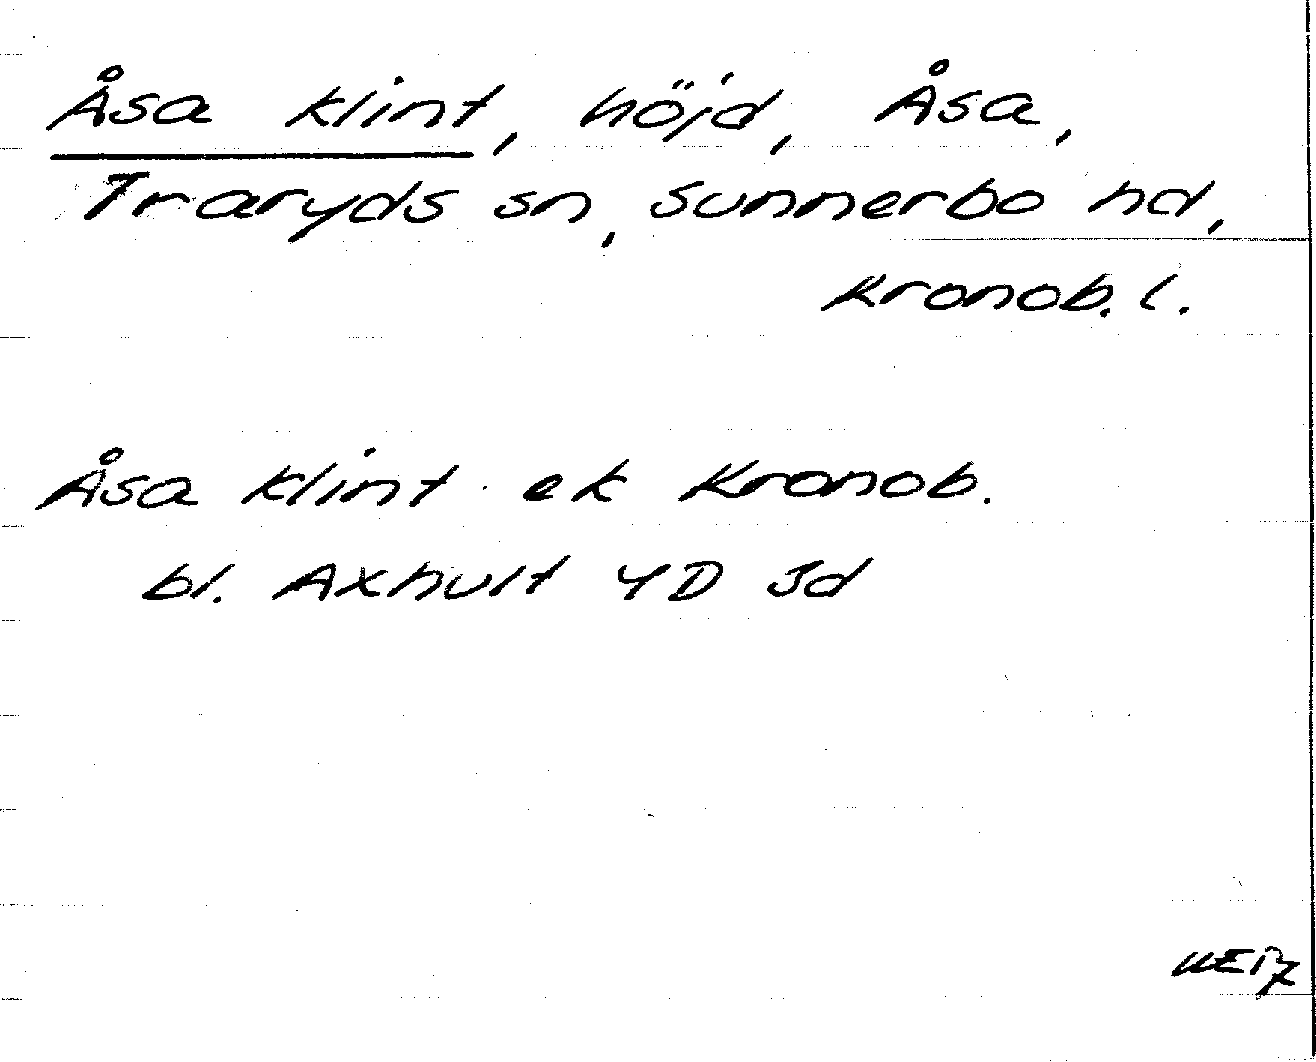 Åsa klint, höjd, Åsa,
Traryds sn, Sunnerbo hd,
Kronob. l.
Åsa klint ek Kronob.
bl. Axhult 4D Jd